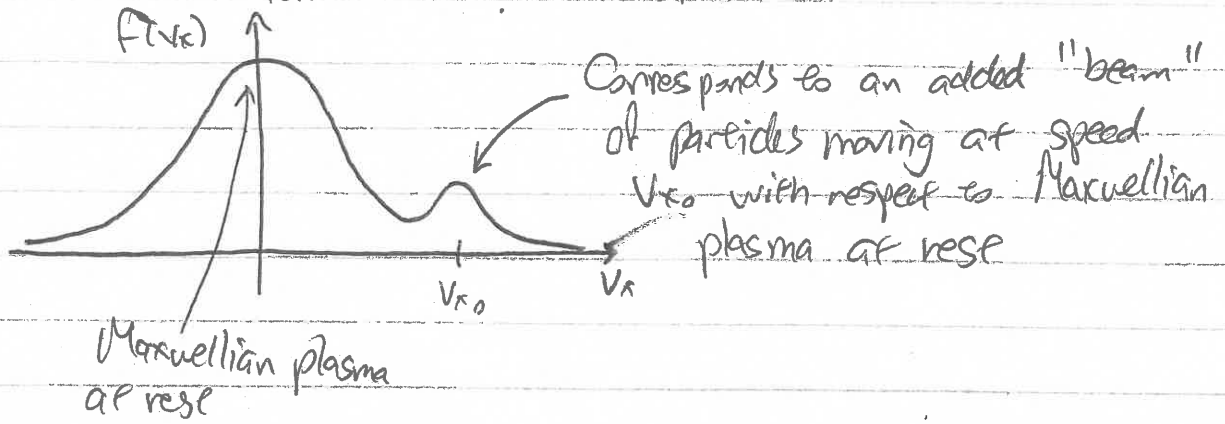 F(Vx)
Corresponds to an added "beam"
of particles moving at speed
Vx0 with respect to Maxwellian
plasma at rest
Vx0
Vx
Maxwellian plasma
at rest